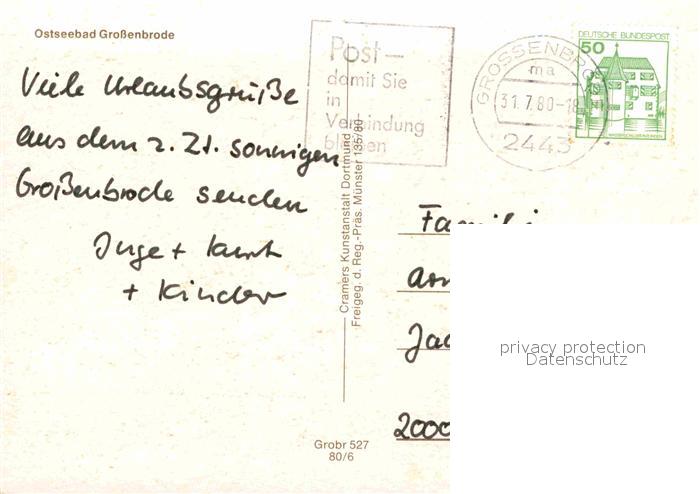 Ostseebad Großenbrode
Viele Urlaubsgrüße
aus dem z. Zt. sonnigen
Großenbrode senden
Inge + Kurt
+ Kinder
Post –
damit Sie
in
Verbindung
bleiben
GROSSENBRO
ma
31.7.80-18
2443
DEUTSCHE BUNDESPOST
50
Cramers Kunstanstalt Dortmund
Freigeg. d. Reg.-Präs. Münster 135/80
Grobr 527
80/6
Familie
Jac
2000
privacy protection
Datenschutz